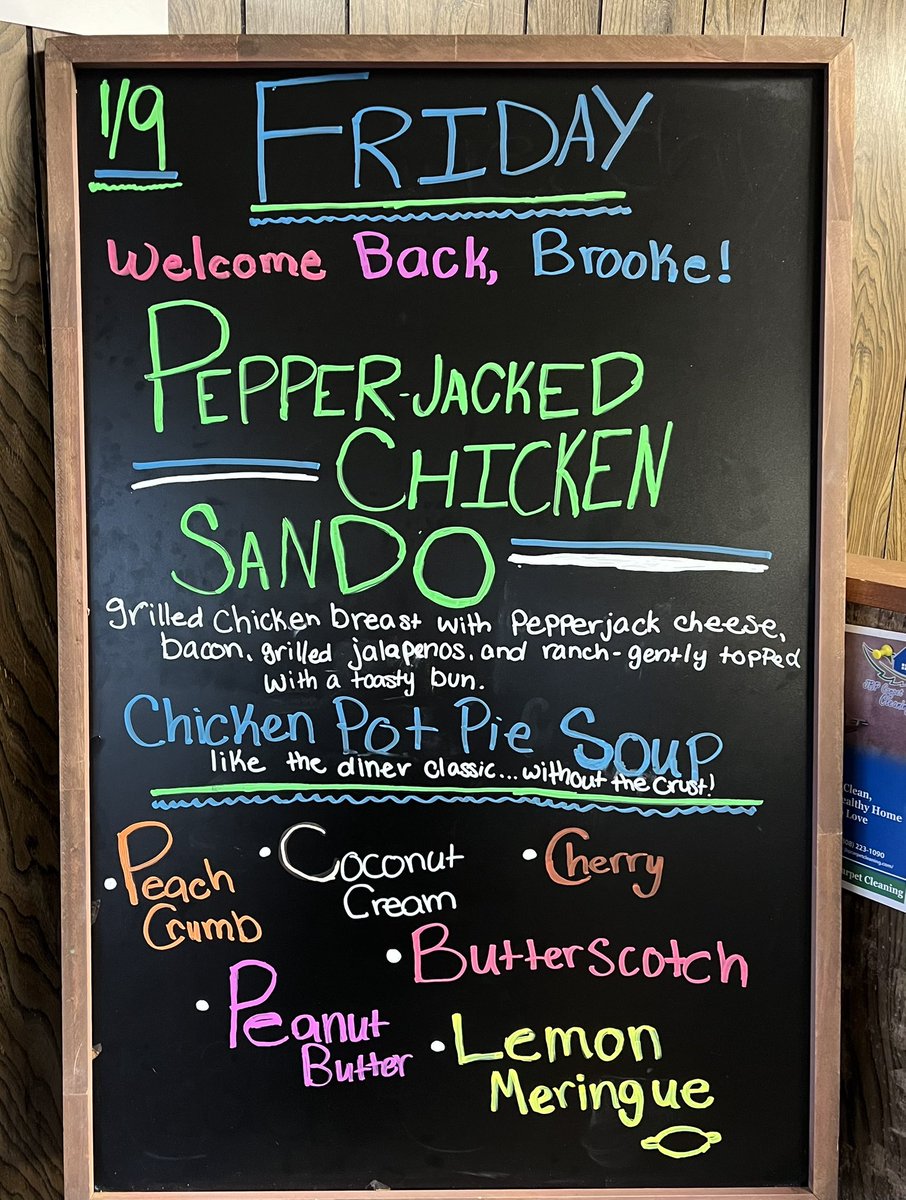 1/9
FRIDAY
Welcome Back, Brooke!
PEPPER-JACKED
CHICKEN
SANDO
grilled Chicken breast with Pepperjack cheese,
bacon, grilled jalapenos, and ranch-gently topped
with a toasty bun.
Chicken Pot Pie Soup
like the diner classic...without the crust!
• Peach
Crumb
• Coconut
Cream
• Cherry
• Butterscotch
• Peanut
Butter
• Lemon
Meringue
Clean,
ealthy Home
Love
08) 223-1090
arpet Cleaning